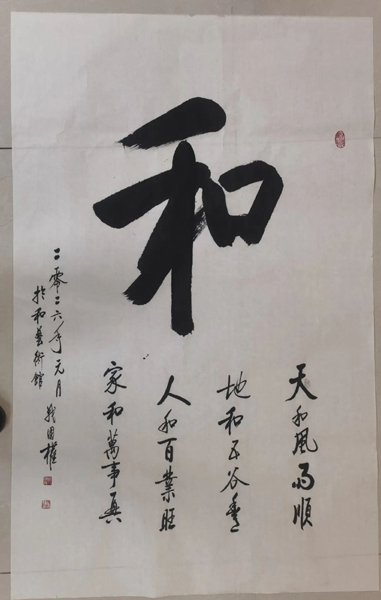 和
天和風雨順
地和五谷豊
人和百業旺
家和萬事興
二零二六年元月
於和藝術館
國權